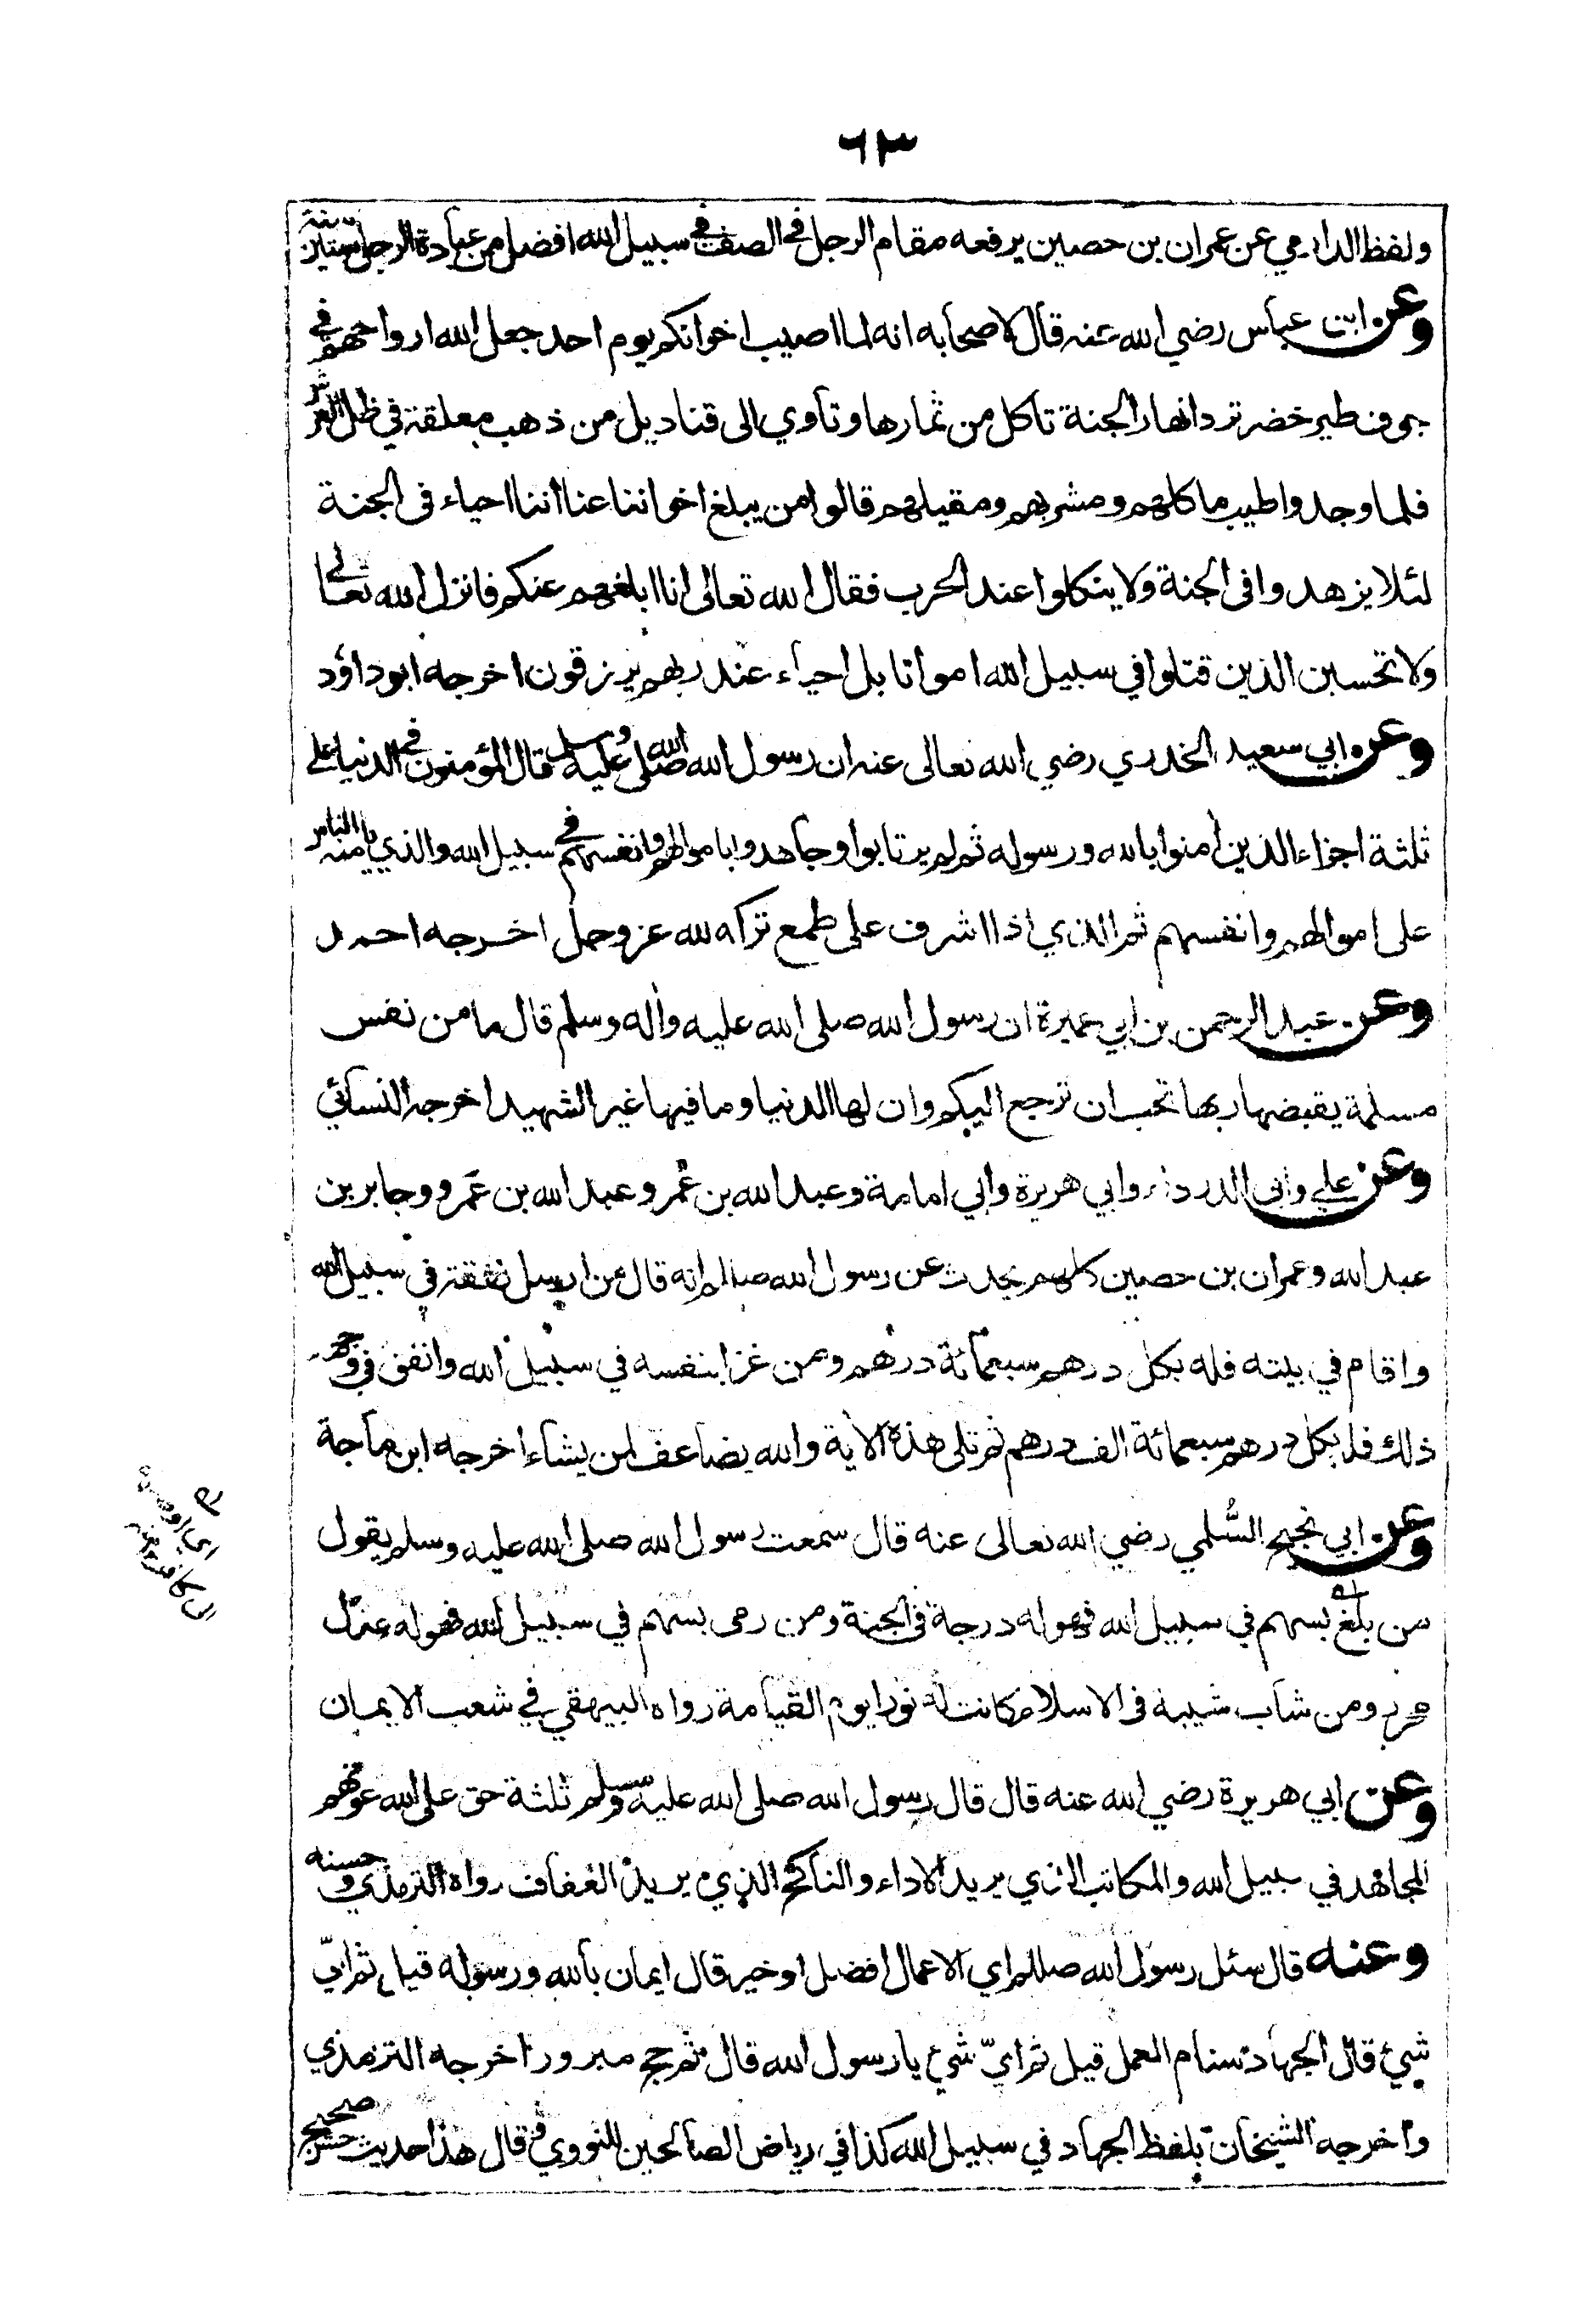 ٦٣
ولفظ الدارمي عن عمران بن حصين يرفعه مقام الرجل في الصف في سبيل الله افضل من عبادة الرجل ستين سنة
وعن ابن عباس رضي الله عنه قال لاصحابه انه لما اصيب اخوانكم يوم احد جعل الله ارواحهم في
جوف طير خضر ترد انهار الجنة تاكل من ثمارها وتأوي الى قناديل من ذهب معلقة في ظل العرش
فلما وجدوا طيب ماكلهم ومشربهم ومقيلهم قالوا من يبلغ اخواننا عنا اننا احياء فى الجنة
لئلا يزهدوا فى الجنة ولا ينكلوا عند الحرب فقال الله تعالى انا ابلغهم عنكم فانزل الله تعالى
ولا تحسبن الذين قتلوا في سبيل الله امواتا بل احياء عند ربهم يرزقون اخرجه ابو داؤد
وعن ابي سعيد الخدري رضي الله تعالى عنه ان رسول الله صلى الله عليه وسلم قال المؤمنون في الدنيا على
ثلثة اجزاء الذين أمنوا بالله ورسوله ثم لم يرتابوا وجاهدوا باموالهم وانفسهم في سبيل الله والذي يامنه الناس
على اموالهم وانفسهم ثم الذي اذا اشرف على طمع تركه لله عز وجل اخرجه احمد
وعن عبد الرحمن بن ابي عميرة ان رسول الله صلى الله عليه وأله وسلم قال ما من نفس
مسلمة يقبضها ربها تحب ان ترجع اليكم وان لها الدنيا وما فيها غير الشهيد اخرجه النسائي
وعن علي وابى الدرداء وابي هريرة وابي امامة وعبد الله بن عُمر وعبد الله بن عَمرو وجابر بن
عبد الله وعمران بن حصين كلهم يحدث عن رسول الله صللم انه قال من ارسل نفقة في سبيل الله
واقام في بيته فله بكل درهم سبعمائة درهم ومن غزا بنفسه في سبيل الله وانفق في وجهه
ذلك فله بكل درهم سبعمائة الف درهم ثم تلى هذه الأية والله يضاعف لمن يشاء اخرجه ابن ماجة
وعن ابي نجيح السُّلمي رضي الله تعالى عنه قال سمعت رسول الله صلى الله عليه وسلم يقول
من بلغ بسهم في سبيل الله فهو له درجة فى الجنة ومن رمى بسهم في سبيل الله فهو له عدل
محرر ومن شاب شيبة فى الاسلام كانت له نورا يوم القيامة رواه البيهقي في شعب الايمان
وعن ابي هريرة رضي الله عنه قال قال رسول الله صلى الله عليه وسلم ثلثة حق على الله عونهم
المجاهد في سبيل الله والمكاتب الذي يريد الاداء والناكح الذي يريد العفاف رواه الترمذي وحسنه
وعنه قال سئل رسول الله صللم اي الاعمال افضل او خير قال ايمان بالله ورسوله قيل ثم ايّ
شيئ قال الجهاد سنام العمل قيل ثم ايّ شيئ يا رسول الله قال ثم حج مبرور اخرجه الترمذي
واخرجه الشيخان بلفظ الجهاد في سبيل الله كذا في رياض الصالحين للنووي قال هذا حديث حسن صحيح